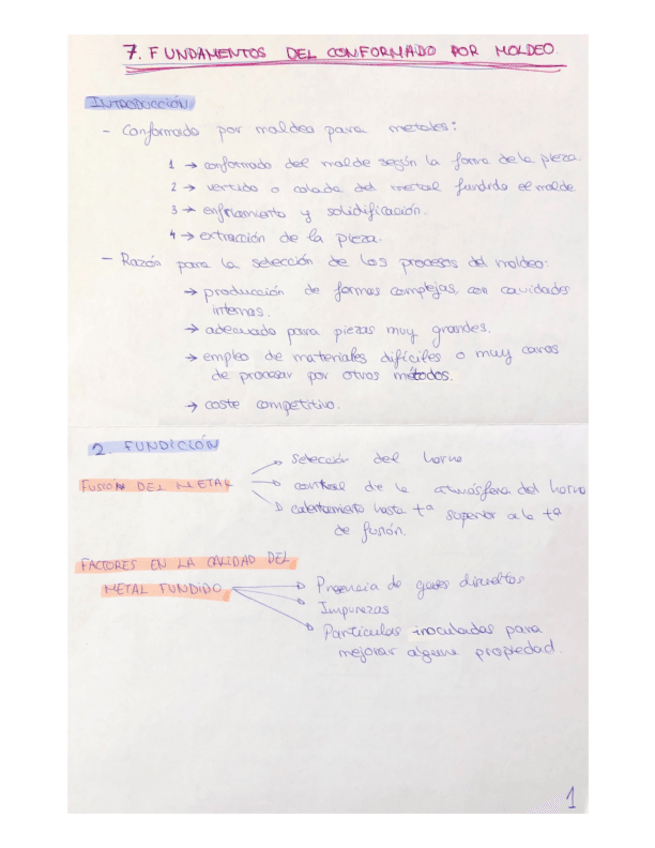 7. FUNDAMENTOS DEL CONFORMADO POR MOLDEO.
INTRODUCCIÓN
- Conformado por moldeo para metales:
1 → conformado del molde según la forma de la pieza.
2 → vertido o colada del metal fundido el molde
3 → enfriamiento y solidificación.
4 → extracción de la pieza.
- Razón para la selección de los procesos del moldeo:
→ producción de formas complejas, con cavidades
internas.
→ adecuado para piezas muy grandes.
→ empleo de materiales difíciles o muy caros
de procesar por otros métodos.
→ coste competitivo.
2. FUNDICIÓN
FUSIÓN DEL METAL
→ Selección del horno
→ control de la atmósfera del horno
→ calentamiento hasta tª superior a la tª
de fusión.
FACTORES EN LA CALIDAD DEL
METAL FUNDIDO
→ Presencia de gases disueltos
→ Impurezas
→ Partículas inoculadas para
mejorar alguna propiedad.
1